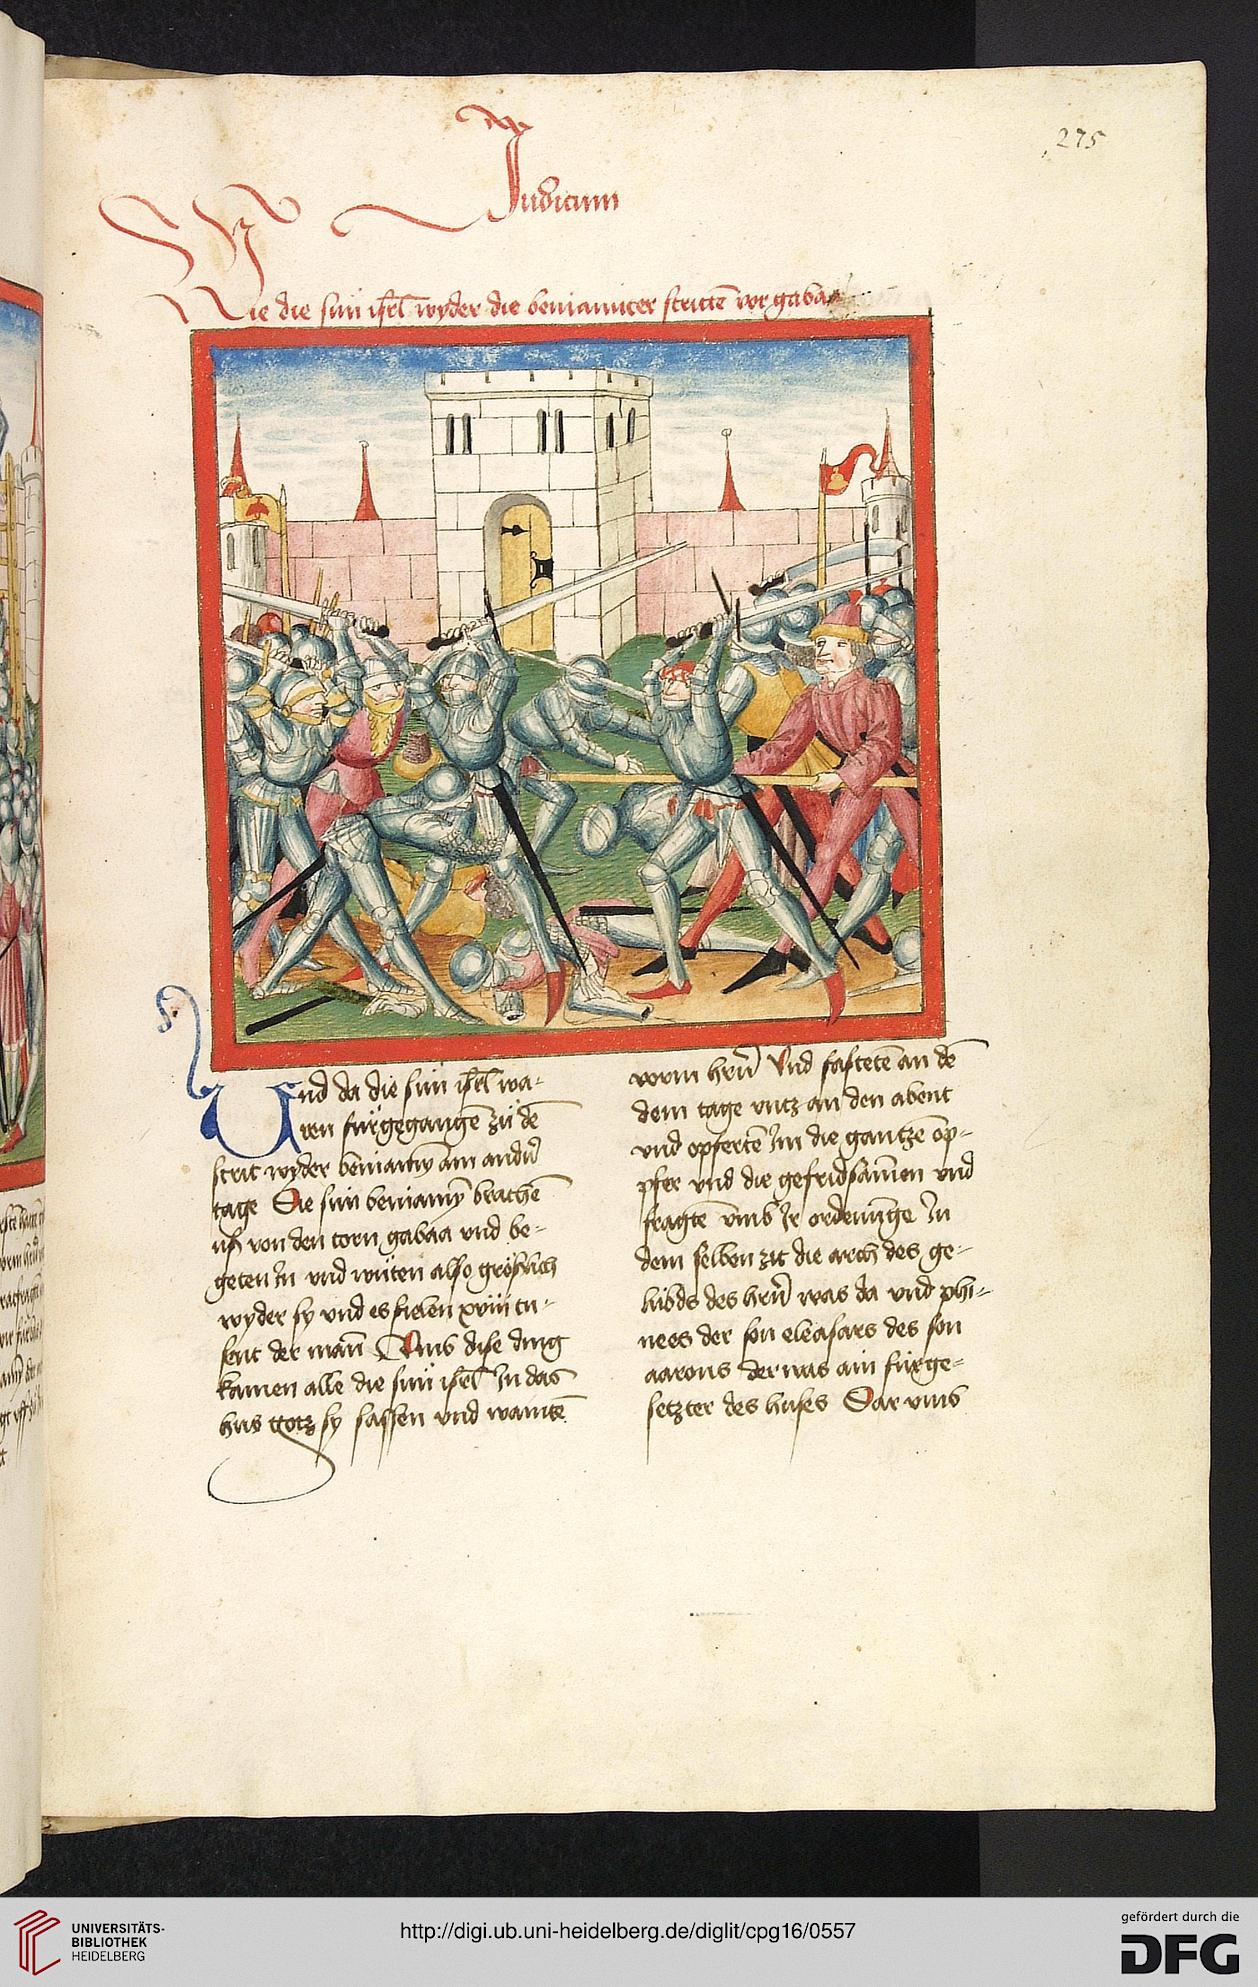 275
Judicum
Wie die sün isrl wyder die beniamiter stritte͂ vor gabaa
Und da die sün isrl wa-
ren fürgegange͂ zů de͂
strit wyder beniamy͂ am andn̄
tage Die sün beniamy͂ brache͂
uß von den torn gabaa vnd be-
geten In vnd wüten also größlich
wyder sy vnd es fielen xviij tu-
sent der man͂ Vmb dise ding
kamen alle die sün isrl In das
hus gotz sy sassen vnd wainte͂
vorm hrn̄ Vnd fastete͂ an de͂
dem tage vntz an den abent
vnd opferte͂ Im die gantze op-
pfer vnd die gefridsame͂n vnd
fragte͂ vmb Ir ordenu͂nge In
dem selben zit die arch des ge-
lübds des hrn̄ was da vnd phi-
nees der son eleasars des son
aarons der was ain fürge-
setzter des huses Dar vmb
UNIVERSITÄTS-
BIBLIOTHEK
HEIDELBERG
http://digi.ub.uni-heidelberg.de/diglit/cpg16/0557
gefördert durch die
DFG